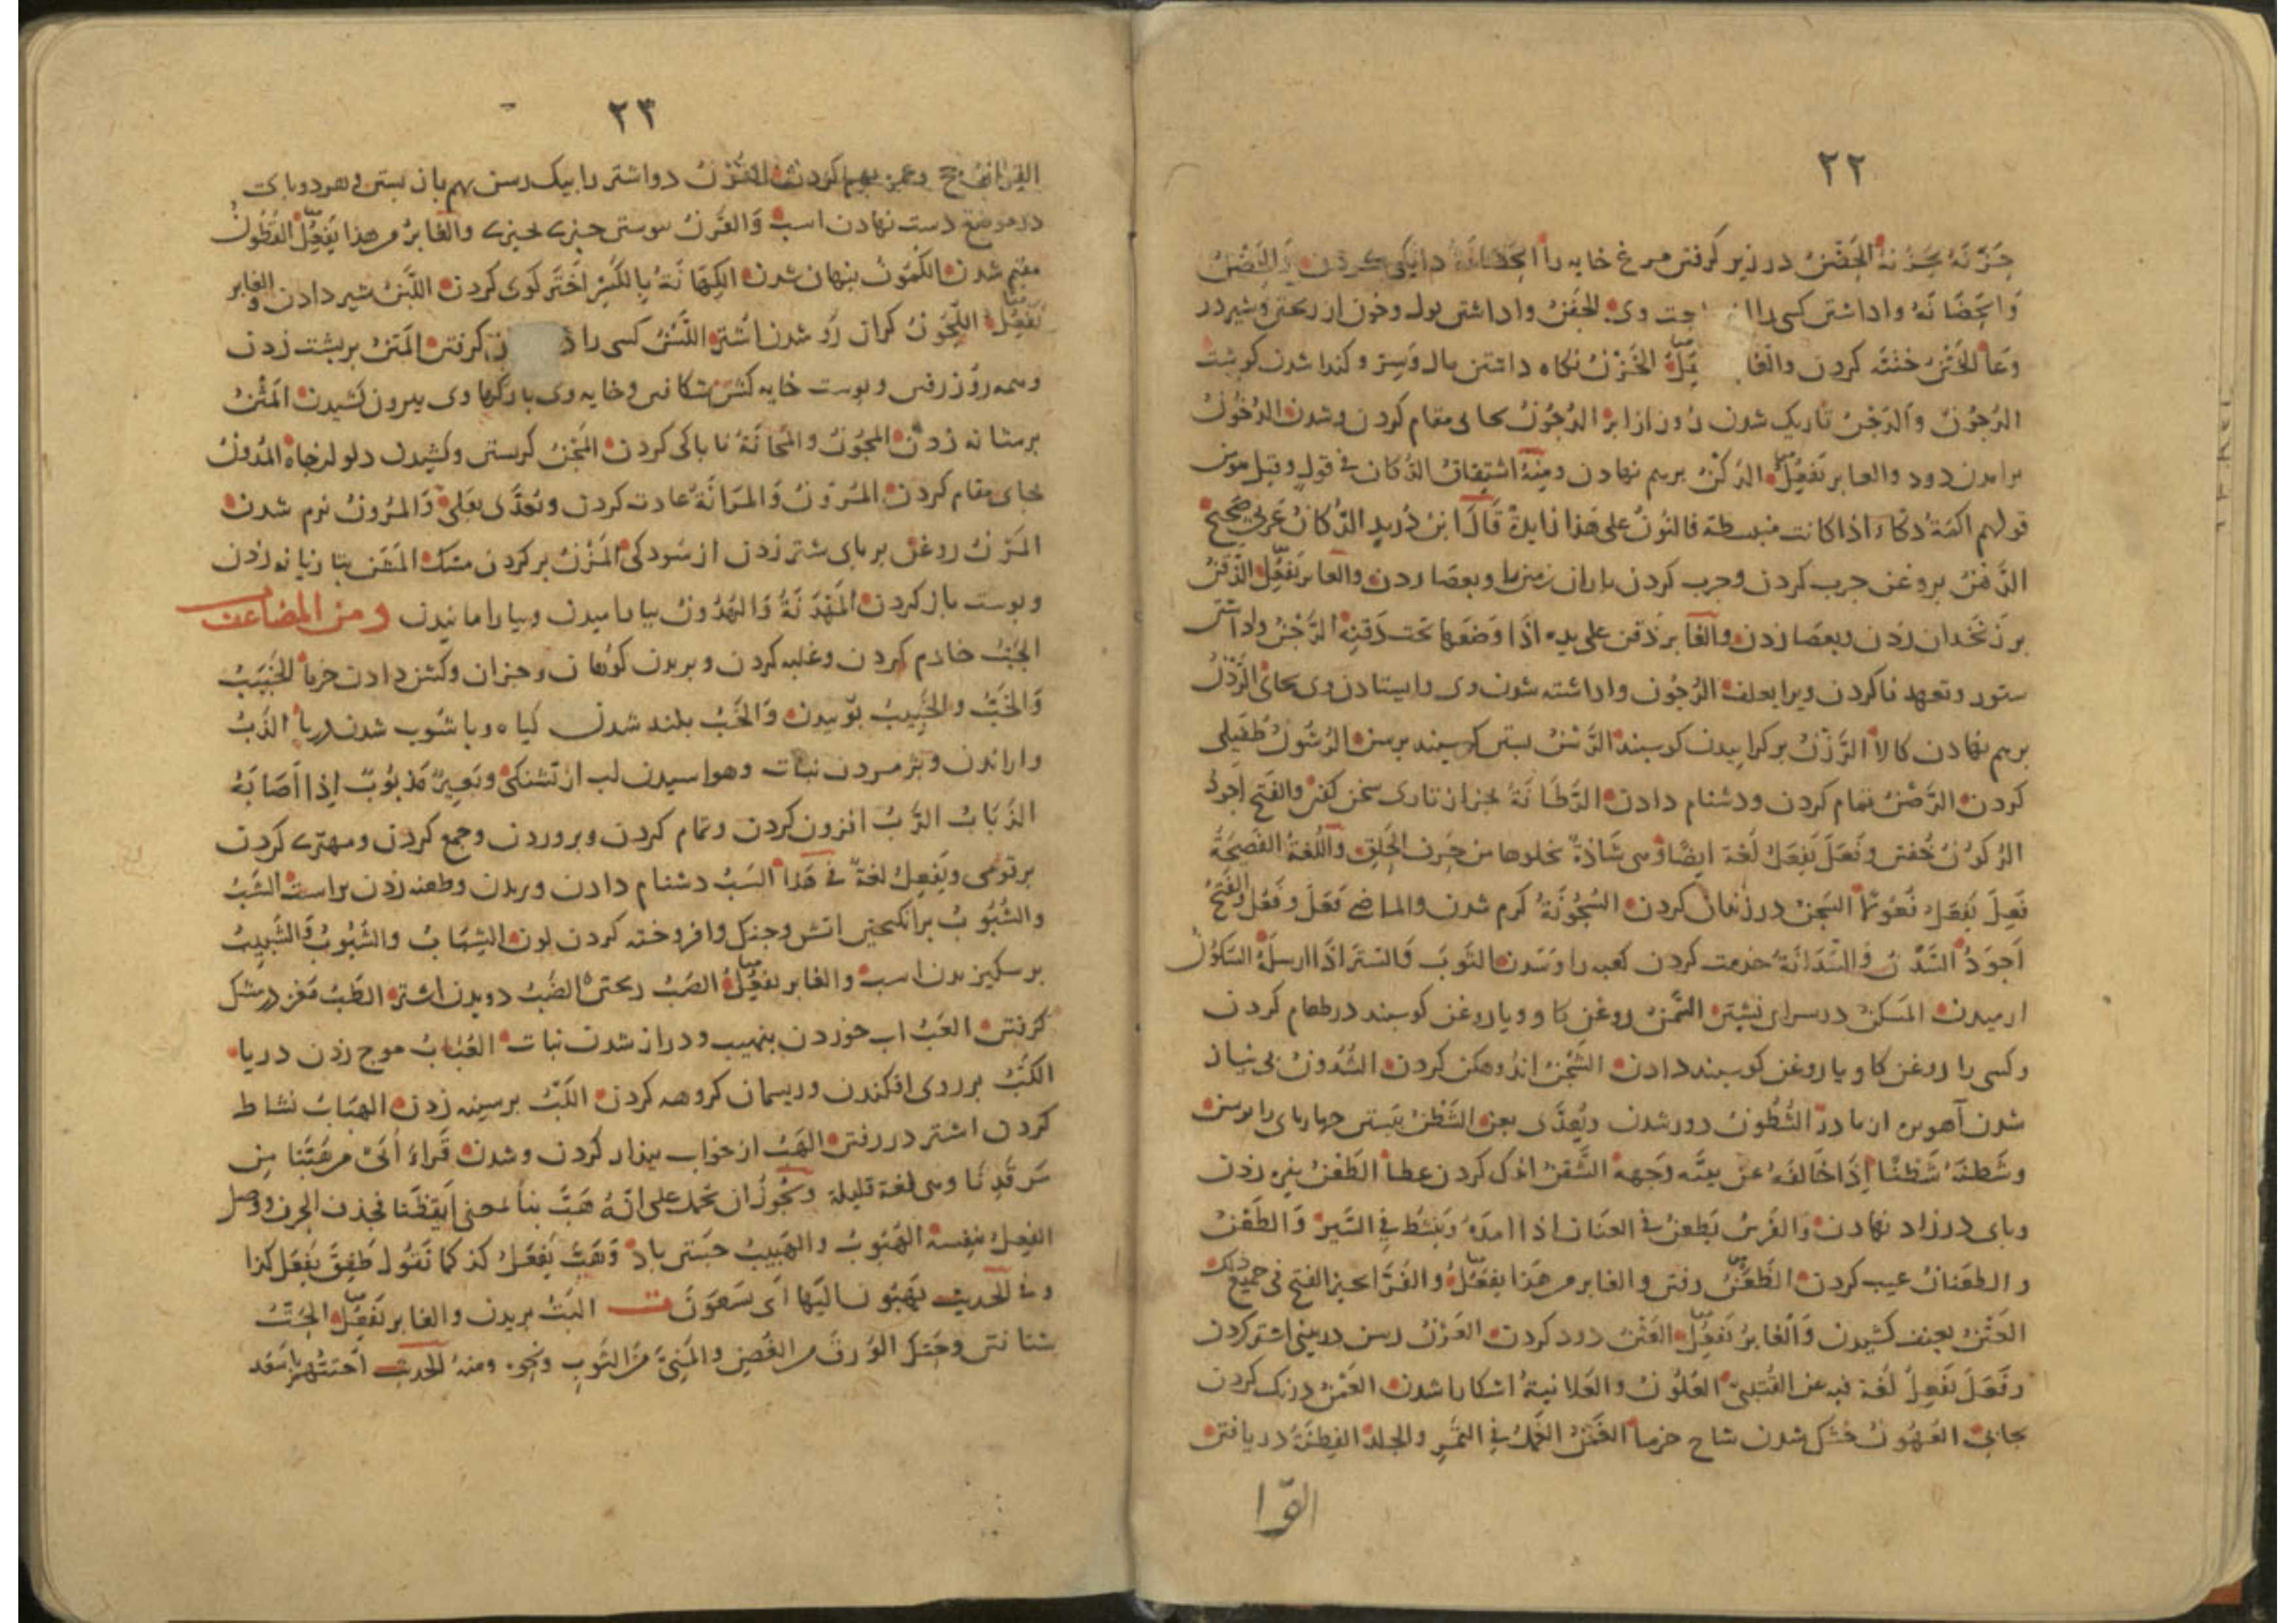 ۲۲
حَزَنَهُ يَحْزُنهُ الحَضْنُ در زیر کرفتن مرغ خایه را الحَضَانَةُ دایکی کردن
وَالحَضَانَهُ واداشتن کسی را وی الحَقْنُ واداشتن بول وخون از ریختن وشیر در
وعا الخَتْنُ ختنَه کردن والغا الخَزْنُ نکاه داشتن مال وَسِرّ وکندا شدن کوشت
الدُجُونُ وَالدَجْنُ تاریک شدن روز از ابر الدُجُونُ بجای مقام کردن وشدن الدُخُونُ
برامدن دود والغابر یَفْعُلُ الدَکْنُ برهم نهادن ومِنهُ اشتِقاقُ الدُّکان فی قولٍ وقیل هو من
قولهم اکمَةٌ دکاء اذا کانت منبسطة فالنُونُ علی هَذا زایدةٌ قَالَ ابنُ دُرَیدٍ الدُّکانُ عَرَبیٌ صَحِیحٌ
الدَهْنُ بروغن چرب کردن وچرب کردن باران زمین را وبعصا زدن والغابر یَفْعُلُ الذَقْنُ
بر زنخدان زدن وبعصا زدن والغابر ذقن علی یده اذَا وَضَعَها تَحتَ ذَقَنِهِ الرَجْنُ واداشتن
ستور وتعهد ناکردن ویرا بعلف الرُجُون واداشته شدن وی وایستادن وی بجای الرَّدْنُ
برهم نهادن کالا الرَزْنُ برکراییدن کوسبند الرَسْنُ بستن کوسبند برسن الرُشُونُ طفَیلی
کردن الرَصْنُ تمام کردن ودشنام دادن الرَطَانَةُ بجز از تازی سخن کفتن والفَتح اجودُ
الرُکُونُ خُفتن وفَعَلَ یَفعَلُ لُغَة ایضًا وهی شَاذةٌ لخلوها من حَرف الحَلق واللُّغَةُ الفَصِیحَةُ
فَعِلَ یَفعَلُ السَجْنُ در زندان کردن السُخُونَةُ کرم شدن والماضی فَعَلَ وفَعُلَ والفَتحُ
اَجوَدُ السَّدْنُ وَالسَدَانَةُ خدمت کردن کعبه را وَسَدَن الثوبَ وَالستَرَ اذَا ارسلَهُ السُکُونُ
ارمیدن المَسکَنُ در سرای نشستن السَّمْنُ روغن کاو ویا روغن کوسبند در طعام کردن
وکسی را روغن کاو ویا روغن کوسبند دادن الشَجْنُ اندوهکن کردن الشُدُونُ بی نیاز
شدن آهوبره از مادر الشُطُونُ دور شدن ویُعَدَّی بعن الشَطْنُ بَبستن چهاربای را برسن
وشَطنَهُ شَطْنًا اِذَا خَالَفَهُ عن وَجهه الشَکْنُ اندک کردن عطا الطَعْنُ بنیزه زدن
وبای در زاد نهادن والفَرَسُ یَطعنُ فی العنَان اذا امدَهُ وَینبَسِطُ فی السَیر وَالطَعْنُ
والطَعَنانُ عیب کردن الظَعْنُ رفتن والغابر من هَذا یَفْعَلُ والفَرَّاء یجیز الفتح فی جَمیعِ ذلک
العَتْنُ بعنف کشیدن وَالغَابرُ یَفعُلُ العَثْنُ دود کردن العَرْنُ رسن در بینی اشتر کردن
وفَعَلَ یَفْعِلُ لُغَة فیه عن القُتَبِیّ العُلُونُ والعَلانیَةُ اشکارا شدن العَمْنُ درنک کردن
بجائی العُهُونُ خُشک شدن شاخ خرما الغَمْنُ الغَمُّ فی التَمْرِ والجِلد الفِطنَةُ دریافتن
القرا
۲۳
القِرَانُ حج وعمره بهم کردن القَرْنُ دو اشتر را بیک رسن بهم باز بستن وهر دو بای
در موضع دست نهادن اسب وَالقَرْنُ بیوستن چیزی بچیزی والغابر من هذا یَفعِلُ القُطُونُ
مقیم شدن الکُمُونُ بنهان شدن الکِهَانَةُ بِالکَسْرِ اَختَر کوی کردن اللَبْنُ شیر دادن والغابر
یَفعِلُ اللُّجُونُ کران رو شدن اشتر اللَّسْنُ کسی را کرفتن المَتْنُ بربشت زدن
وهمه روز رفتن وبوست خایه کشن شکافتن وخایه وی با رکها وی بیرون کشیدن المَثْنُ
بر مثانه زدن المُجُونُ والمَجَانَةُ نا باکی کردن المَخْنُ کریستن وکشیدن دلو از چاه المُدُونُ
بجای مقام کردن المُرُونُ وَالمَرَانَةُ عادت کردن وتُعَدَّی بعَلی وَالمُرُونُ نرم شدن
المَرْنُ روغن بر بای شتر زدن از سُودکی المَزْنُ بر کردن مشک المَشْن بتازیانه زدن
وبوست باز کردن المَهْدَنَةُ وَالهُدُونُ بیارامیدن وبیارامانیدن ومن المضاعف
الجَبُّ خادم کردن وغلبه کردن وبریدن کوهان وجزان وکشن دادن خرما الخَبَبُ
وَالخَبُّ والخَبِیبُ بوییدن وَالخَبُّ بلند شدن کیاه وباشوب شدن دریا الذَبُّ
واراندن وبژمردن نبات وهوا سیدن لب از تشنکی وبَعِیرٌ مَذبُوبٌ اِذَا اَصَابَهُ
الذُبَابُ الرَبُّ افزون کردن وتمام کردن وبروردن وجمع کردن ومهتری کردن
بر قومی ویَفعِلُ لغةٌ فی هَذا السَبُّ دشنام دادن وبریدن وطعنه زدن براست الشَبُّ
والشُبُوبُ برانکیختن اتش وجنک وافروخته کردن لون الشِبَابُ والشُبُوبُ وَالشَبِیبُ
برسکیزیدن اسب والغابر یَفعِلُ الصَبُّ ریختن الضَبُّ دویدن اشتر الطَبُّ مَغز در مشک
کرفتن العَبُّ اب خوردن بنهیب ودراز شدن نبات العُبَابُ موج زدن دریا
الکَبُّ بر روی افکندن وریسمان کروهه کردن اللَبُّ بر سینه زدن الهِبَابُ نشاط
کردن اشتر در رفتن الهَبُّ از خواب بیدار کردن وشدن قَراءَ اُبَیّ مَن هَبَّنَا مِن
مَرقَدِنَا وهی لغة قلیلة وَیجُوزُ ان یحمل علی انَهُ هَبَّ بنا بمعنی اَیقَظَنا فحذف الحرف ووصل
الفِعلُ بنفسه الهُبُوبُ والهَبِیبُ جَستن باد وَهَبَّ یَفعَلُ کذا کما تَقُولُ طَفِقَ یَفعَل کذا
وفی الحَدیث یَهُبُّونَ الَیهَا اَی یَسعَونَ ت البَتُّ بریدن والغابر یَفعِلُ الحَتُّ
شتافتن وحَتَّ الوَرَقَ من الغُصنِ والمَنِیَّ مِنَ الثَوبِ ونحوه ومنهُ الحَدیث احتتهم یا سَعد